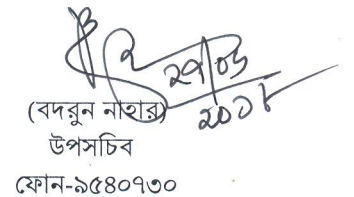 ২৭/০৬
২০১৮
(বদরুন নাহার)
উপসচিব
ফোন-৯৫৪০৭৩০